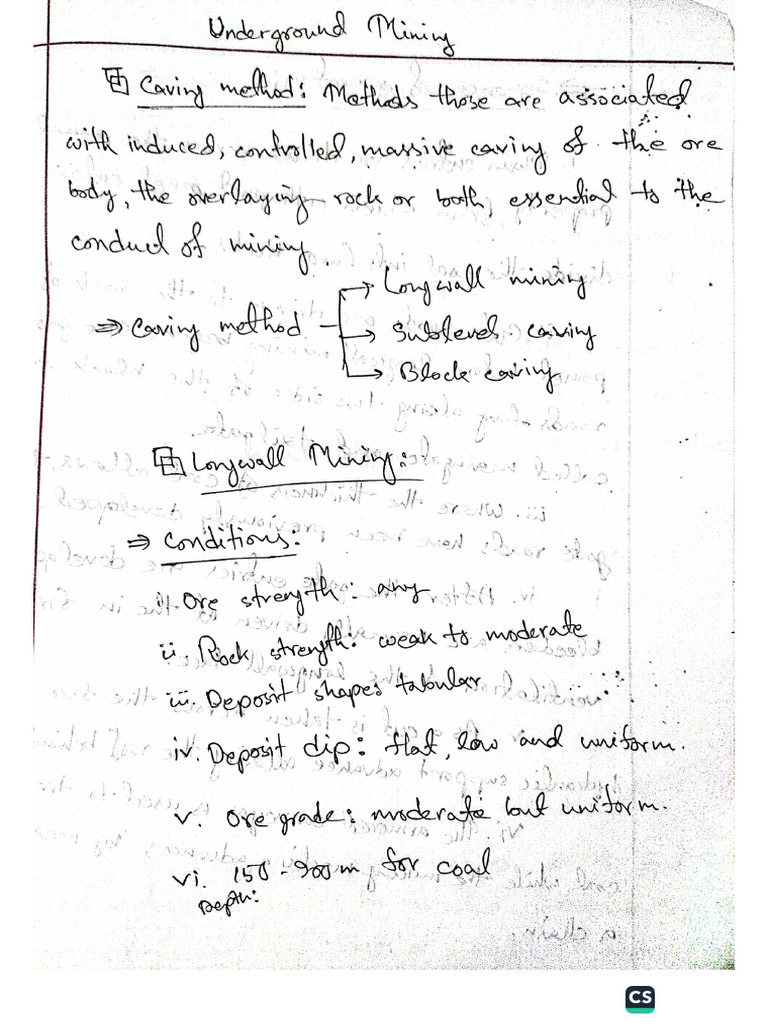 Underground Mining
Caving method: Methods those are associated
with induced, controlled, massive caving of the ore
body, the overlaying rock or both, essential to the
conduct of mining.
→ Longwall mining
⇒ Caving method → Sublevel caving
→ Block caving
Longwall Mining:
⇒ Conditions:
i. Ore strength: any
ii. Rock strength: weak to moderate
iii. Deposit shape: tabular
iv. Deposit dip: flat, low and uniform.
v. Ore grade: moderate but uniform.
vi. 150-900m for coal
Depth:
CS